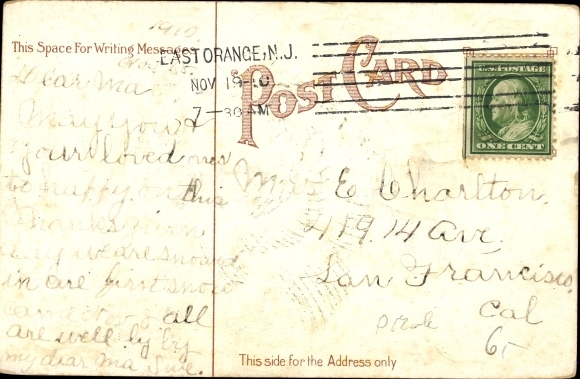 1910
This Space For Writing Messages
Dear Ma
May you &
your loved ones
be happy on this
Thanksgiven
day we are snowed
in are first snow
all
are well by by
my diar Ma Sue.
EAST ORANGE, N.J.
NOV 19 10
7-30 AM
POST CARD
U.S. POSTAGE
ONE CENT
Mrs E Charlton.
419. 14 Ave.
San Francisco.
Cal
6
This side for the Address only